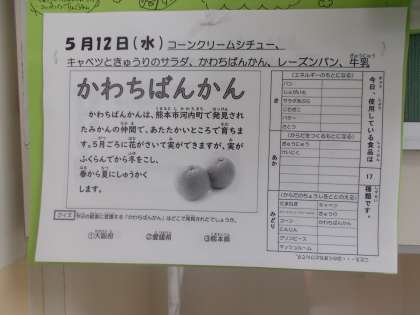 5月12日(水) コーンクリームシチュー、
キャベツときゅうりのサラダ、かわちばんかん、レーズンパン、牛乳
かわちばんかん
かわちばんかんは、熊本市河内町で発見され
たみかんの仲間で、あたたかいところで育ちま
す。5月ごろに花がさいて実ができますが、実が
ふくらんでから冬をこし、
春から夏にしゅうかく
します。
クイズ
①大阪府 ②愛媛県 ③熊本県
今日、使用している食品は
17
種類です。
き
(エネルギーのもとになる)
パン
じゃがいも
サラダあぶら
こむぎこ
バター
さとう
あか
(からだをつくるもとになる)
ぎゅうにゅう
とりにく
みどり
(からだのちょうしをととのえる)
たまねぎ
キャベツ
きゅうり
コーン
かわちばんかん
にんじん
グリンピース
マッシュルーム